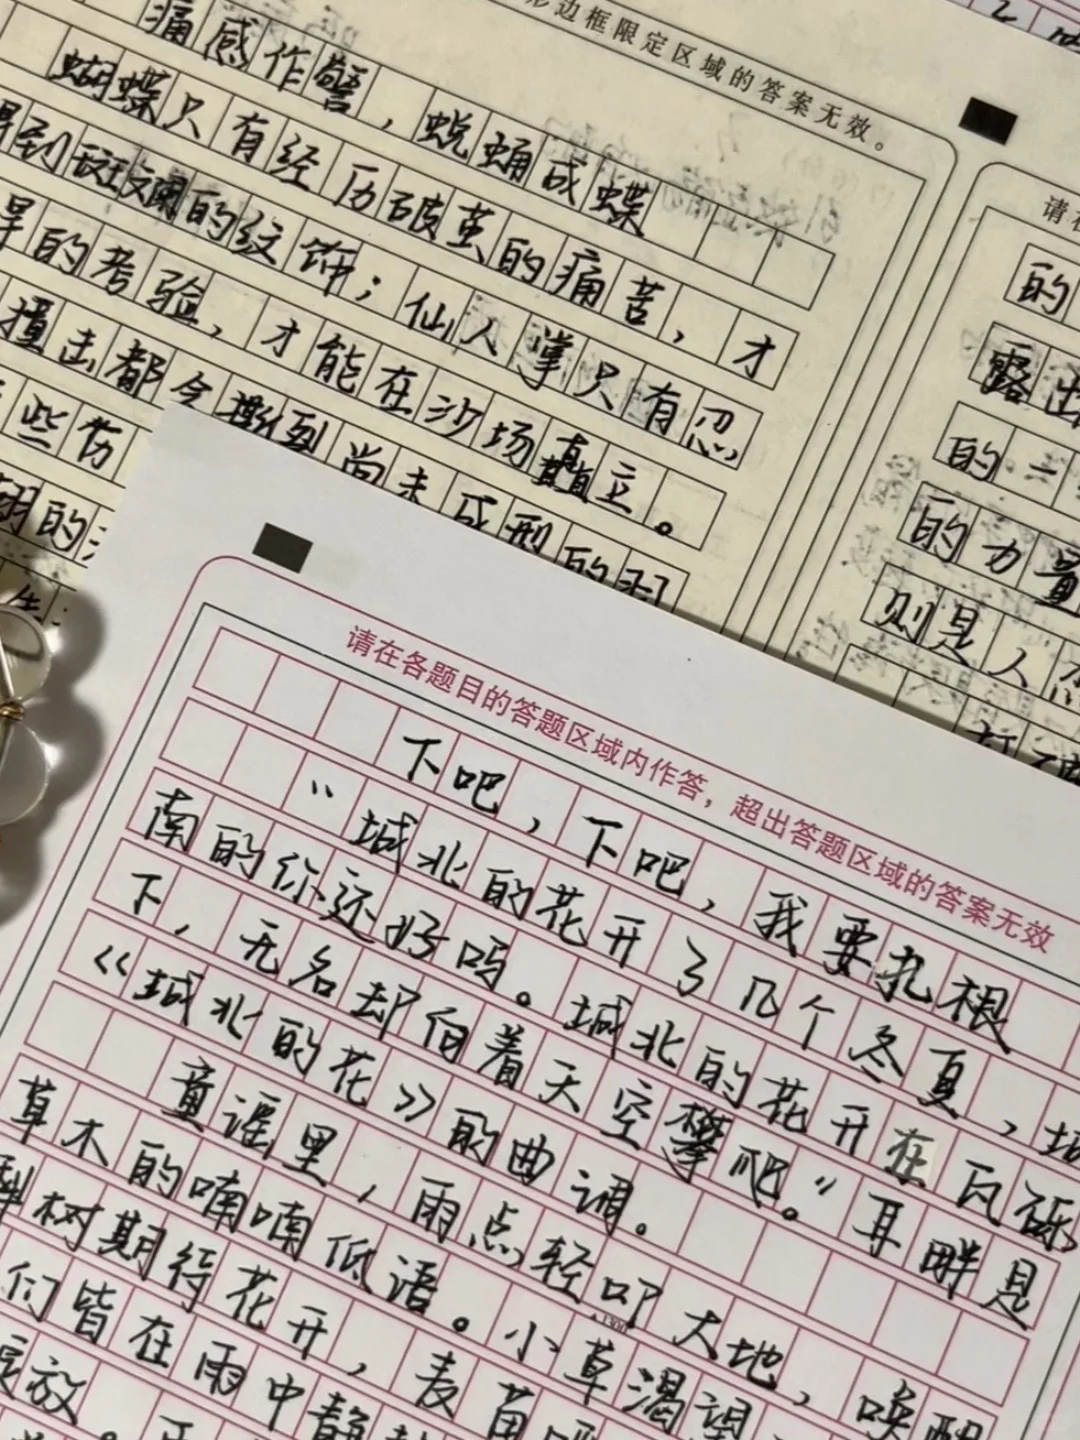 形边框限定区域的答案无效。
痛感作警，蜕蛹成蝶
蝴蝶只有经历破茧的痛苦，才
得到斑斓的纹饰；仙人掌只有忍
旱的考验，才能在沙场矗立。
撞击都会撕裂尚未成型的羽
些伤
翅的
请在
的
露出
的二
的力量
则是人
请在各题目的答题区域内作答，超出答题区域的答案无效
下吧，下吧，我要扎根
“城北的花开了几个冬夏，城
南的你还好吗。城北的花开在瓦砾
下，无名却向着天空攀爬。”耳畔是
《城北的花》的曲调。
童谣里，雨点轻叩大地，唤醒
草木的喃喃低语。小草渴望
树期待花开，麦苗
们皆在雨中静
放。